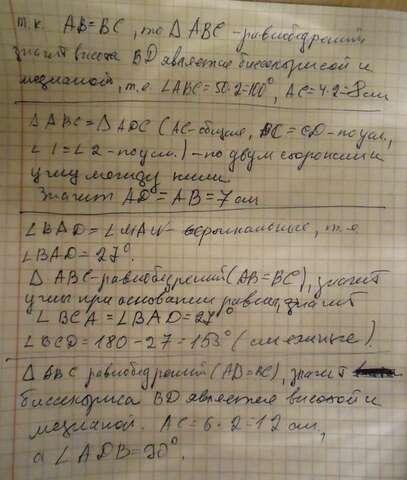 т.к. AB=BC, то △ABC - равнобедренный
значит высота BD является биссектрисой и
медианой, т.е. ∠ABC=50·2=100°, AC=4·2=8см
△ABC=△ADC (AC-общая, BC=CD-по усл,
∠1=∠2-по усл.)-по двум сторонам и
углу между ними
Значит AD=AB=7см
∠BAD=∠MAN-вертикальные, т.е.
∠BAD=27°.
△ABC-равнобедренный(AB=BC), значит
углы при основании равны, значит
∠BCA=∠BAD=27°
∠BCD=180-27=153°(смежные).
△ABC равнобедренный(AB=BC), значит
биссектриса BD является высотой и
медианой. AC=6·2=12см,
а ∠ADB=90°.